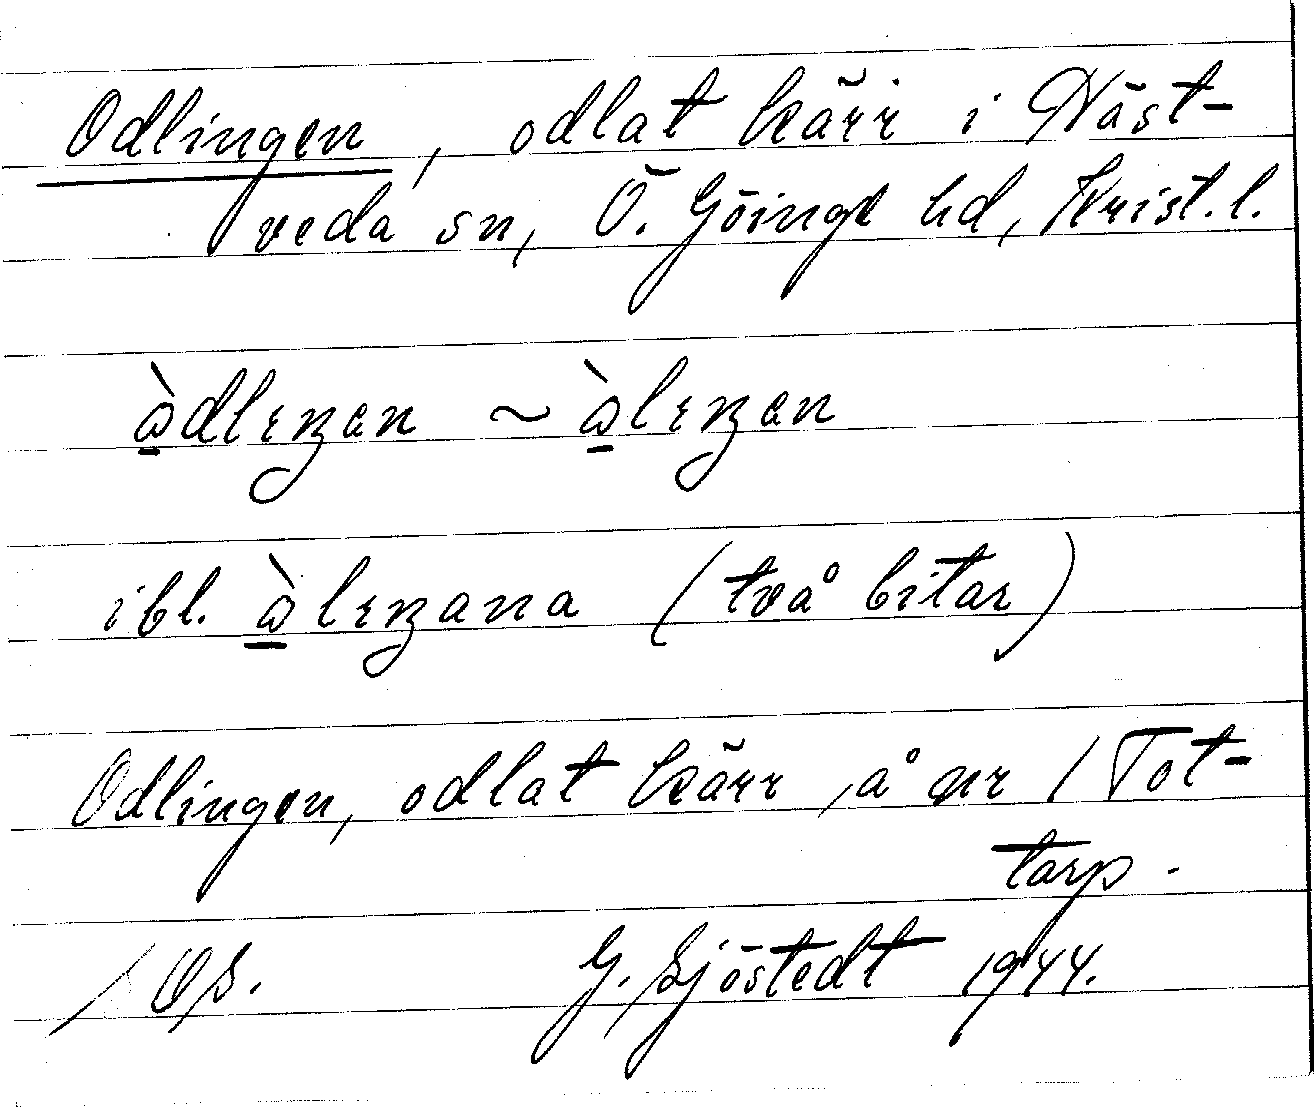 Odlingen, odlat kärr i Näst-
veda sn, Ö. Göinge hd, Krist. l.
ὰdlɪŋen ~ ὰlɪŋen
ibl. ὰlɪŋana (två bitar)
Odlingen, odlat kärr, å nr 1 Tot-
tarp.
G. Sjöstedt 1944.